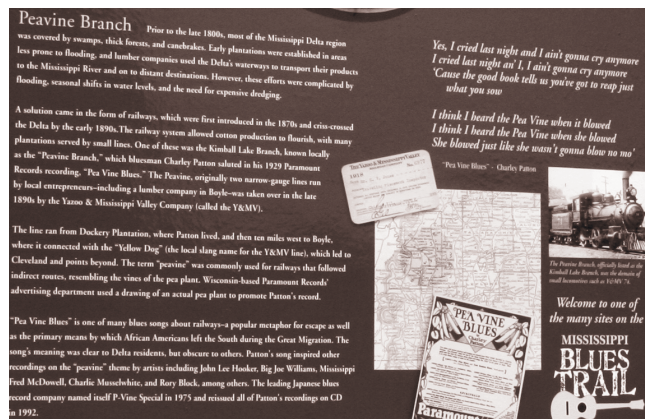 Peavine Branch Prior to the late 1800s, most of the Mississippi Delta region
was covered by swamps, thick forests, and canebrakes. Early plantations were established in areas
less prone to flooding, and lumber companies used the Delta's waterways to transport their products
to the Mississippi River and on to distant destinations. However, these efforts were complicated by
flooding, seasonal shifts in water levels, and the need for expensive dredging.
A solution came in the form of railways, which were first introduced in the 1870s and criss-crossed
the Delta by the early 1890s.The railway system allowed cotton production to flourish, with many
plantations served by small lines. One of these was the Kimball Lake Branch, known locally
as the "Peavine Branch," which bluesman Charley Patton saluted in his 1929 Paramount
Records recording, "Pea Vine Blues." The Peavine, originally two narrow-gauge lines run
by local entrepreneurs–including a lumber company in Boyle–was taken over in the late
1890s by the Yazoo & Mississippi Valley Company (called the Y&MV).
The line ran from Dockery Plantation, where Patton lived, and then ten miles west to Boyle,
where it connected with the "Yellow Dog" (the local slang name for the Y&MV line), which led to
Cleveland and points beyond. The term "peavine" was commonly used for railways that followed
indirect routes, resembling the vines of the pea plant. Wisconsin-based Paramount Records'
advertising department used a drawing of an actual pea plant to promote Patton's record.
"Pea Vine Blues" is one of many blues songs about railways–a popular metaphor for escape as well
as the primary means by which African Americans left the South during the Great Migration. The
song's meaning was clear to Delta residents, but obscure to others. Patton's song inspired other
recordings on the "peavine" theme by artists including John Lee Hooker, Big Joe Williams, Mississippi
Fred McDowell, Charlie Musselwhite, and Rory Block, among others. The leading Japanese blues
record company named itself P-Vine Special in 1975 and reissued all of Patton's recordings on CD
in 1992.
Yes, I cried last night and I ain't gonna cry anymore
I cried last night an' I, I ain't gonna cry anymore
'Cause the good book tells us you've got to reap just
what you sow
I think I heard the Pea Vine when it blowed
I think I heard the Pea Vine when she blowed
She blowed just like she wasn't gonna blow no mo'
"Pea Vine Blues" - Charley Patton
The Yazoo & Mississippi Valley
The Peavine Branch, officially listed as the
Kimball Lake Branch, was the domain of
small locomotives such as Y&MV 74.
PEA VINE
BLUES
Paramount
Welcome to one of
the many sites on the
MISSISSIPPI
BLUES
TRAIL